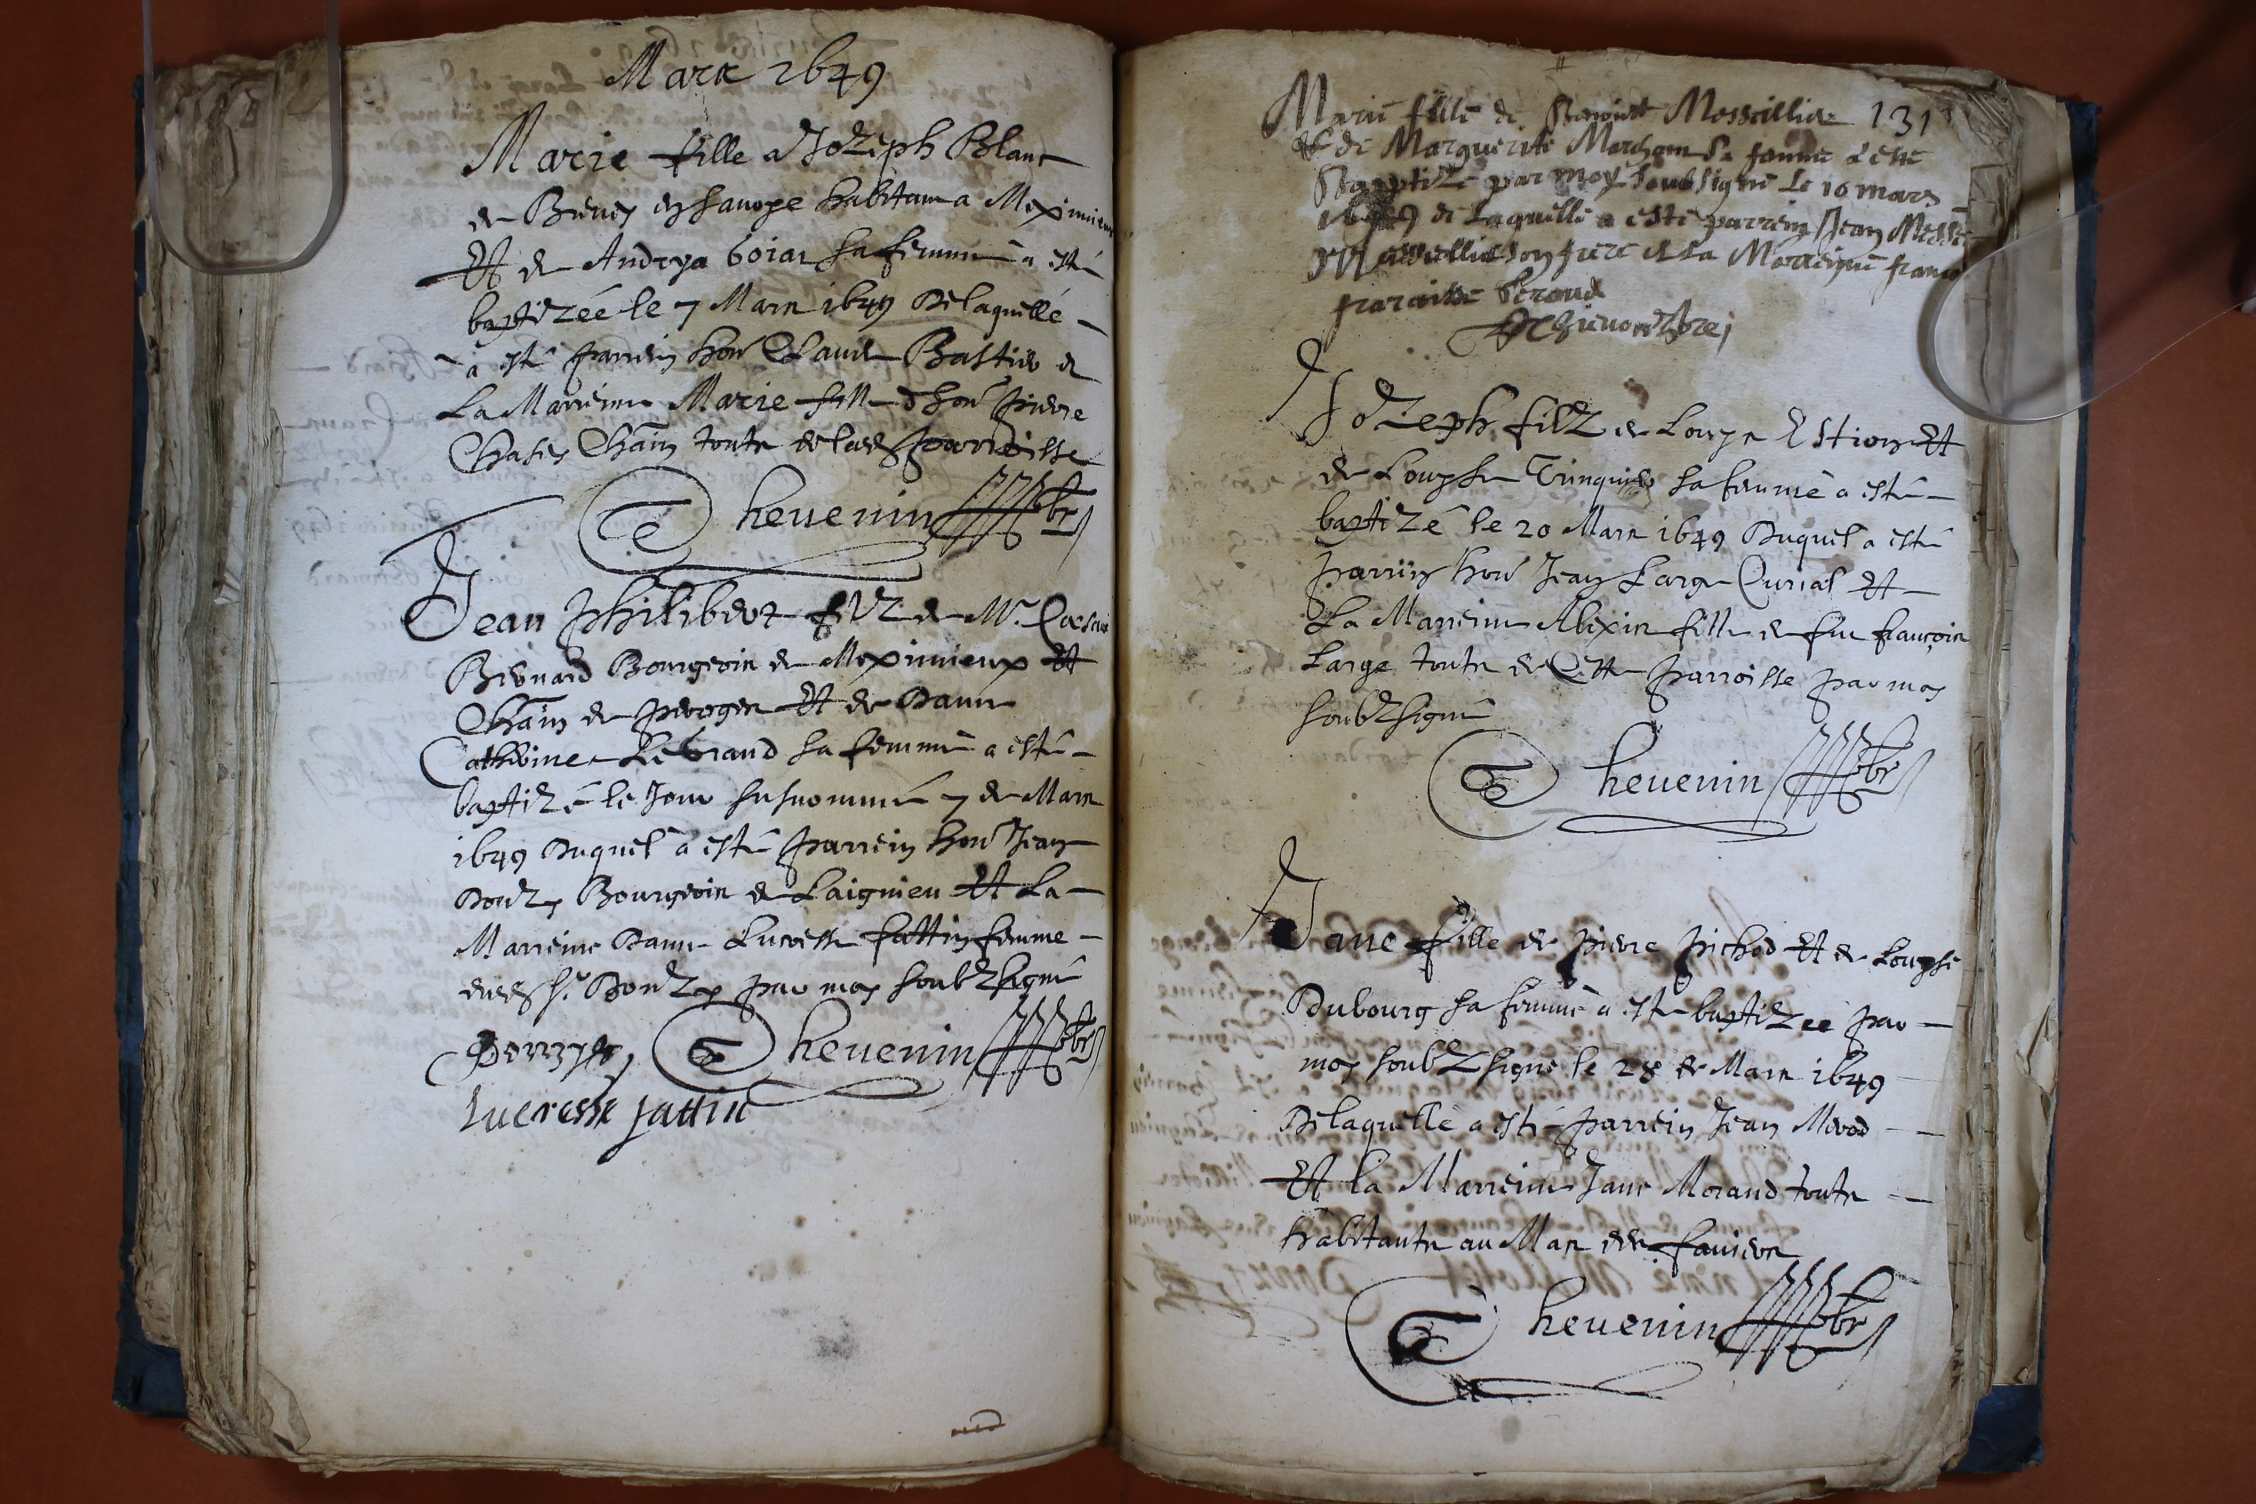 Mars 1649
Marie fille a Jozeph Blanc
de en savoye habitant a Meximieux
Et de Andrya sa femme a esté
baptizéé le 7 Mars 1649 Delaquellé
a esté parrein hon Claude Bastier et
La Marreine Marie fille d hon pierre
Chasť Chain toutz de lad parroisse
Thevenin pbr
Jean philibert filz de Mr
Bernard Bourgeois de Meximieux Et
Chain de peroges Et de Dame
Catherine LeGrand sa femme a esté
baptizé le Jour susnommé 7 de Mars
1649 Duquel a esté parrein hon Jean
Bourgeois de Laignieu Et La
Marreine Dame Lucresse fattin femme
dud Sr par moy soubzsigné
Thevenin pbr
lucresse fattin
131
Marie fille de Benoist Messillier
et de Marguerite sa femme a esté
Baptizé par moy soubsigné Le 16 mars
1649 de Laquelle a esté parrein Jean
son frere et La Marreine
Jozeph filz de Louys Estion Et
de Louyse Trinquier sa femme a esté
baptizé le 20 Mars 1649 Duquel a esté
parrein hon Jean Large Curial Et
La Marreine Alexis fille de feu françois
Large toutz de Cette parroisse par moy
soubzsigné
Thevenin pbr
Jane fille de pierre pichod Et de Louyse
Dubourg sa femme a esté baptizéé par
moy soubzsigné le 28 de Mars 1649
Delaquelle a esté parrein Jean Merod
Et la Marreine Jane Morand toutz
habitantz au Mas des
Thevenin pbr